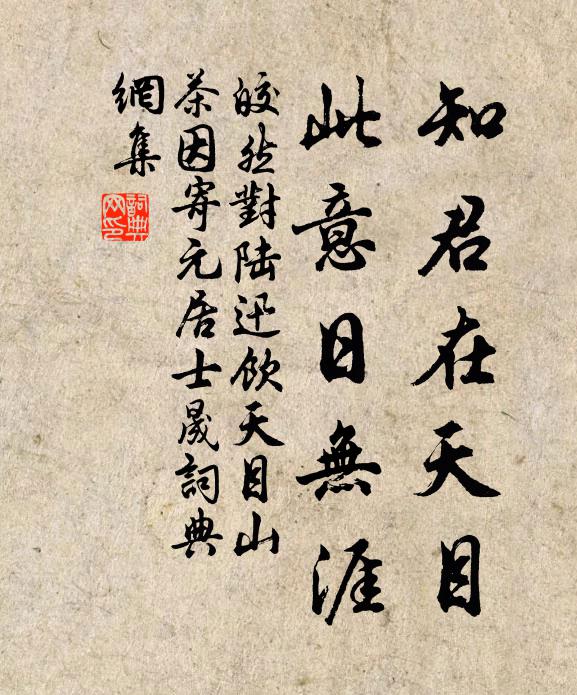 知君在天目
此意日無涯
皎然對陸迅飲天目山
茶因寄元居士晟詞典
網集
詞典
網印